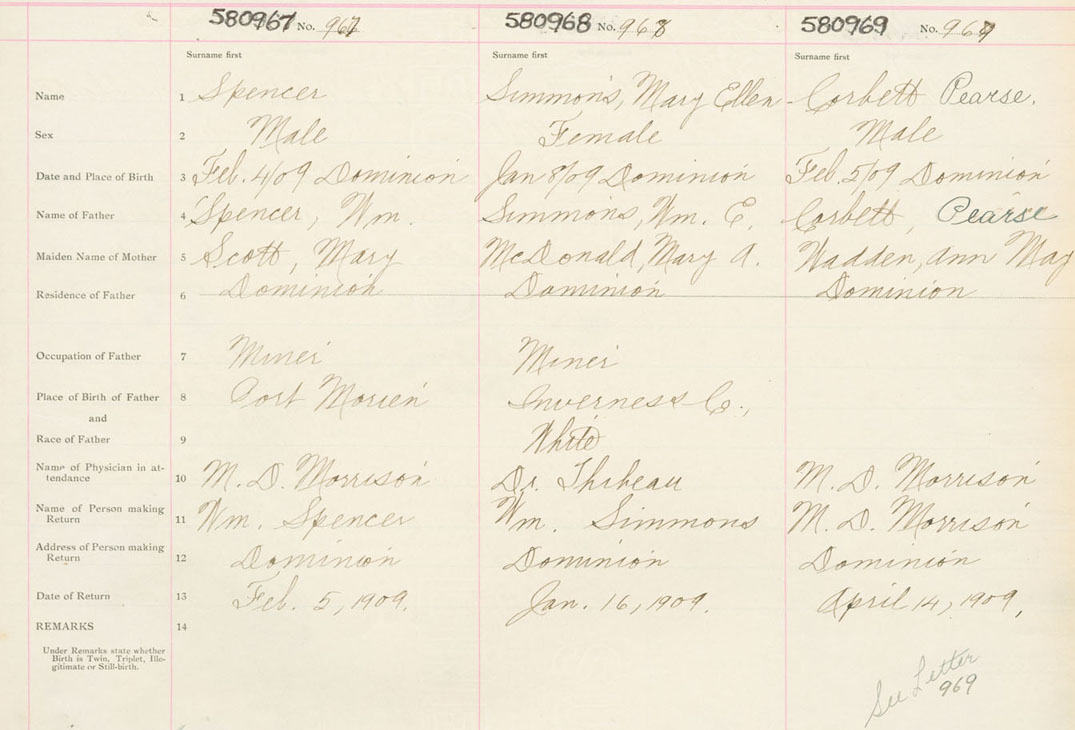 580967 No. 967 580968 No. 968 580969 No. 969
Surname first Surname first Surname first
Name 1 Spencer Simmons, Mary Ellen Corbett Pearse.
Sex 2 Male Female Male
Date and Place of Birth 3 Feb. 4/09 Dominion Jan 8/09 Dominion Feb. 5/09 Dominion
Name of Father 4 Spencer, Wm. Simmons, Wm. E. Corbett, Pearse
Maiden Name of Mother 5 Scott, Mary McDonald, Mary A. Wadden, Ann May
Residence of Father 6 Dominion Dominion Dominion
Occupation of Father 7 Miner Miner
Place of Birth of Father 8 Port Morien Inverness Co.,
and
Race of Father 9 White
Name of Physician in at-
tendance 10 M. D. Morrison Dr. Thibeau M. D. Morrison
Name of Person making
Return 11 Wm. Spencer Wm. Simmons M. D. Morrison
Address of Person making
Return 12 Dominion Dominion Dominion
Date of Return 13 Feb. 5, 1909. Jan. 16, 1909. April 14, 1909,
REMARKS 14
Under Remarks state whether
Birth is Twin, Triplet, Ille-
gitimate or Still-birth.
See Letter
969